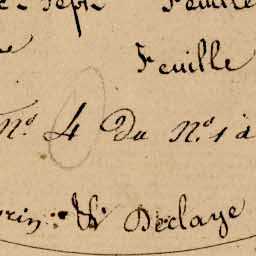 Sept Feuille
Feuille
N.º 4 Du N.º 1 à
Declaye